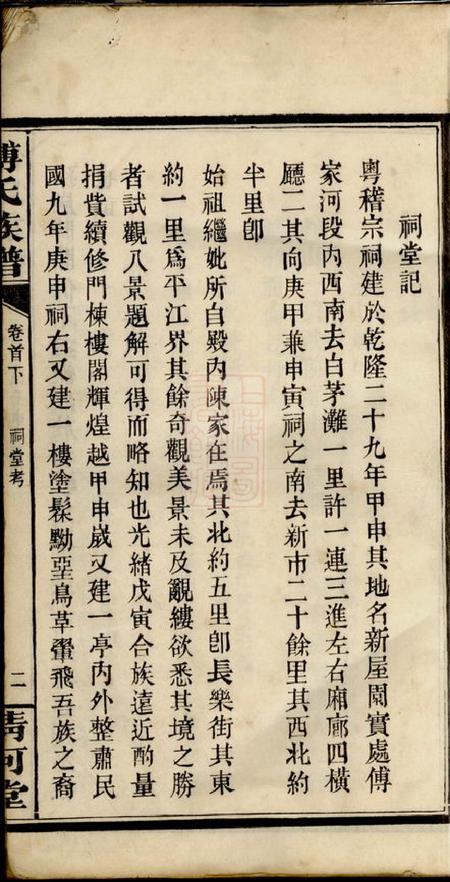 祠堂記
粵稽宗祠建於乾隆二十九年甲申其地名新屋閣實處傅
家河段內西南去白茅灘一里許一連三進左右廂廊四橫
廳二其向庚甲兼申寅祠之南去新市二十餘里其西北約
半里卽
始祖繼妣所自殿內陳家在焉其北約五里卽長樂街其東
約一里爲平江界其餘奇觀美景未及覼縷欲悉其境之勝
者試觀八景題解可得而略知也光緒戊寅合族遠近酌量
捐貲續修門棟樓閣輝煌越甲申歲又建一亭內外整肅民
國九年庚申祠右又建一樓塗髹黝堊鳥革翬飛吾族之裔
傅氏族譜
卷首下
祠堂考
二
淸河堂